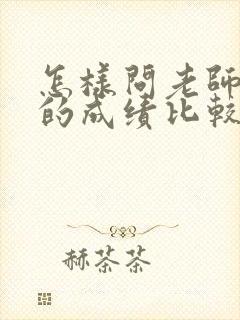 怎樣問老師
的成績比較
赫茶茶